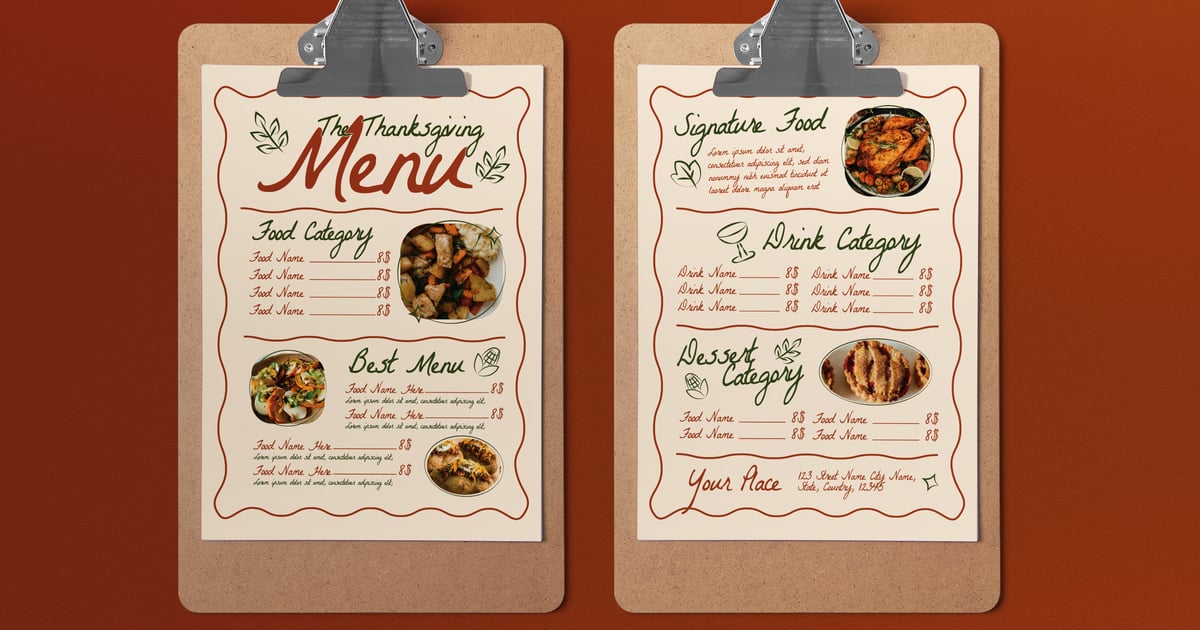 The Thanksgiving
Menu
Food Category
Food Name 8$
Food Name 8$
Food Name 8$
Food Name 8$
Best Menu
Food Name Here 8$
Lorem ipsum dolor sit amet, consectetuer adipiscing elit,
Food Name Here 8$
Lorem ipsum dolor sit amet, consectetuer adipiscing elit,
Food Name Here 8$
Lorem ipsum dolor sit amet, consectetuer adipiscing elit,
Food Name Here 8$
Lorem ipsum dolor sit amet, consectetuer adipiscing elit,
Signature Food
Lorem ipsum dolor sit amet,
consectetuer adipiscing elit, sed diam
nonummy nibh euismod tincidunt ut
laoreet dolore magna aliquam erat
Drink Category
Drink Name 8$ Drink Name 8$
Drink Name 8$ Drink Name 8$
Drink Name 8$ Drink Name 8$
Dessert
Category
Food Name 8$ Food Name 8$
Food Name 8$ Food Name 8$
Your Place
123 Street Name City Name,
State, Country, 12345